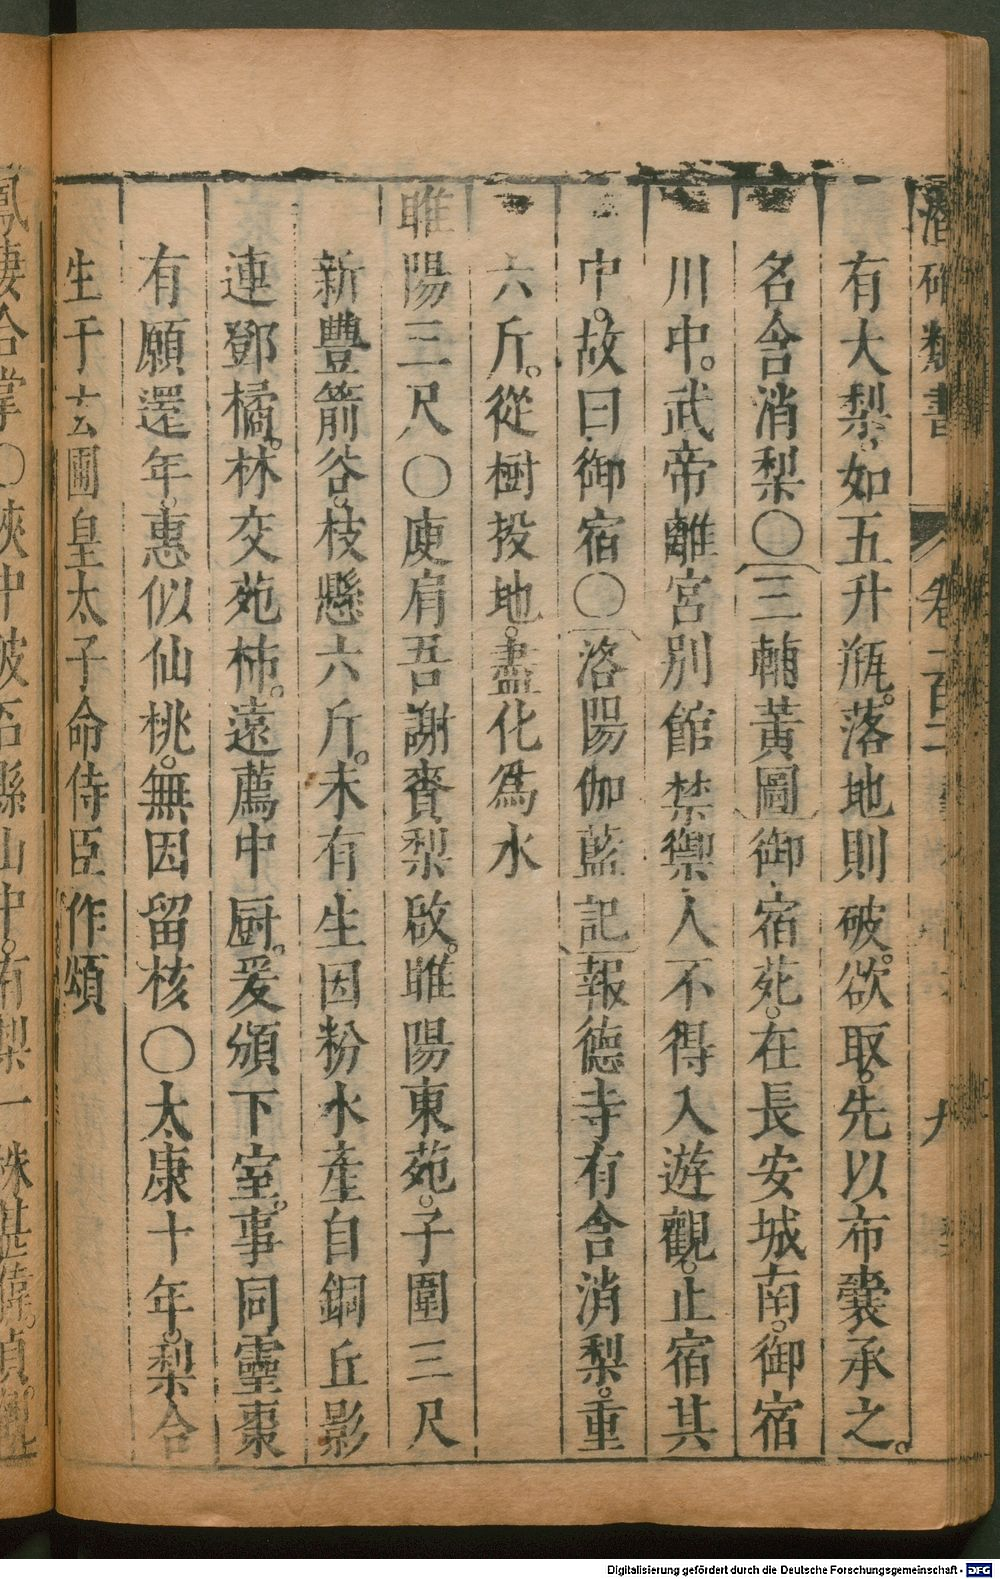 潛確類書 卷一百二 九
有大梨。如五升瓶。落地則破。欲取。先以布囊承之。
名含消梨〇三輔黃圖御宿苑。在長安城南。御宿
川中。武帝離宮別館禁禦人不得入遊觀。止宿其
中。故曰御宿〇洛陽伽藍記報德寺有含消梨。重
六斤。從樹投地。盡化爲水
睢陽三尺〇庾肩吾謝賚梨啟。睢陽東苑。子圍三尺
新豐箭谷。枝懸六斤。未有生因粉水產自銅丘影
連鄧橘。林交苑柿。遠薦中厨。爰頒下室。事同靈棗
有願還年。惠似仙桃。無因留核〇太康十年。梨合
生于玄圃皇太子命侍臣作頌
鳳棲合掌〇陜中破石縣山中。有梨一株甚偉。貞
Digitalisierung gefördert durch die Deutsche Forschungsgemeinschaft - DFG